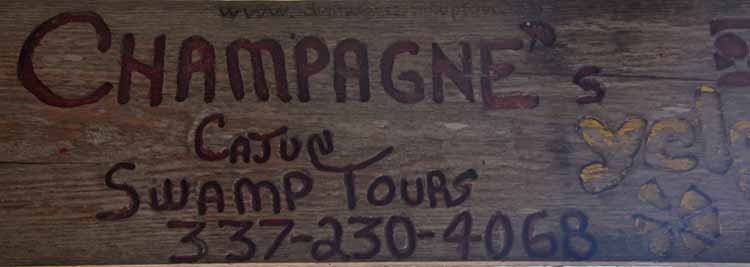 CHAMPAGNE's
yelp
CAJUN
SWAMP TOURS
337-230-4068